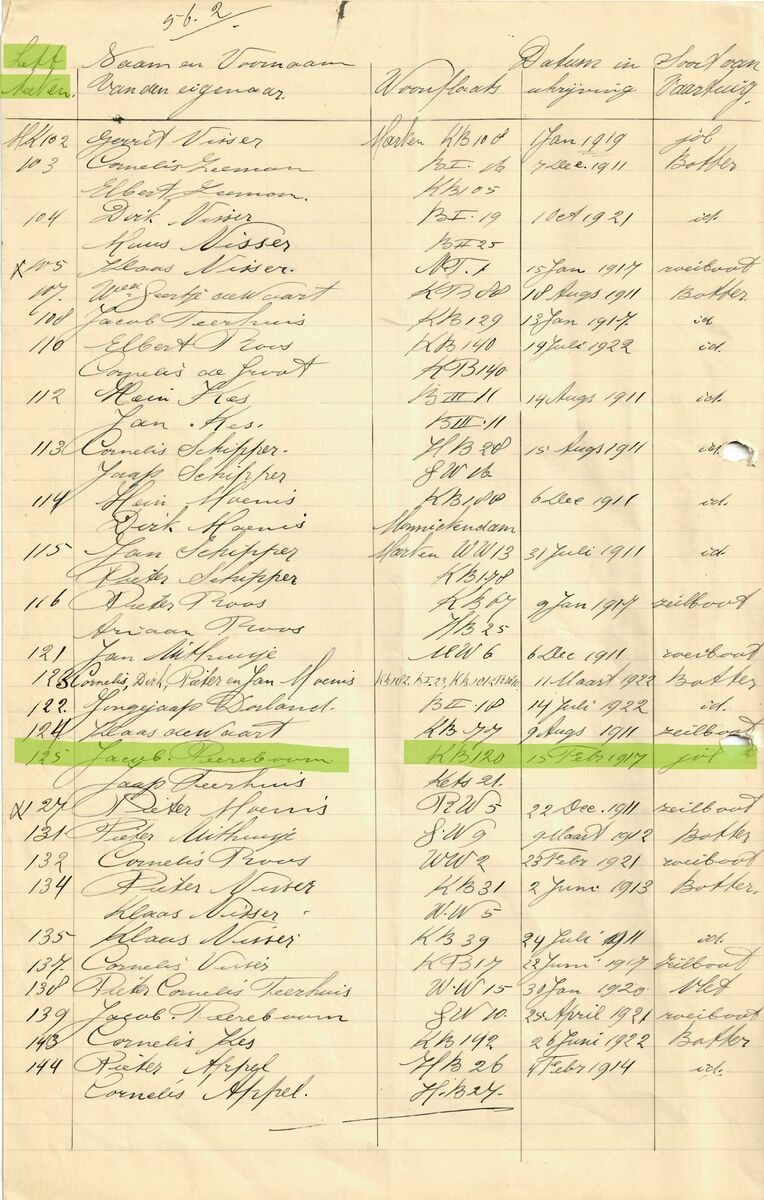 56.2
Lett Naam en Voornaam Datum in Soort van
teeken. van den eigenaar. Woonplaats schrijving Vaartuig.
MK102 Gerrit Visser Marken KB108 1 Jan 1919 jol
103 Cornelis Zeeman B I. 16 7 Dec. 1911 Botter
Elbert Zeeman. KB105
104 Dirk Visser B I. 19 1 Oct 1921 id.
Visser B II 25
X 105 Klaas Visser. 15 Jan 1917 roeiboot
107. Geertje de Waart KB 88 18 Augs 1911 Botter
108 Jacob Teerhuis KB129 13 Jan 1917. id
110 Elbert Roos KB140 19 Juli 1922 id.
Cornelis de Groot KB140
112 Hein Kes B III 11 14 Augs 1911 id.
Jan Kes. B III. 11
113 Cornelis Schipper. HB28 15 Augs 1911 id.
Jaap Schipper G W 16
114 Hein Moenis 6 Dec 1911 id.
Dirk Moenis Monnickendam
115 Jan Schipper Marken WW13 31 Juli 1911 id.
Pieter Schipper KB178
116 Pieter Roos KB67 9 Jan 1917 zeilboot
Ariaan Roos HB25
121 Jan Uithuisje MW6 6 Dec 1911 roeiboot
123 Cornelis, Dirk, Pieter en Jan Moenis 11 Maart 1922 Botter
122. Jongejaap Dorland. B II. 18 14 Juli 1922 id.
124. Klaas de Waart KB 77 9 Augs 1911 zeilboot
125 Jacob. Peereboom. KB120 15 Febr 1917 jol
Jaap Teerhuis Kets 21.
X 127 Pieter Moenis RW5 22 Dec. 1911 zeilboot
131. Pieter Uithuisje G.W 9 9 Maart 1912 Botter
132 Cornelis Roos WW2 23 Febr 1921 roeiboot
134 Pieter Visser KB31 2 Juni 1913 Botter.
Klaas Visser W.W 5
135 Klaas Visser KB39 24 Juli 1911 id.
137. Cornelis Visser KB17 22 Juni 1917 zeilboot
138 Pieter Cornelis Teerhuis W.W 15 30 Jan 1920 Vlet
139 Jacob. Peereboom G W 10. 25 April 1921 roeiboot
143 Cornelis Kes KB142 26 Juni 1922 Botter
144 Pieter Appel HB26 4 Febr 1914 id.
Cornelis Appel. H.B27.